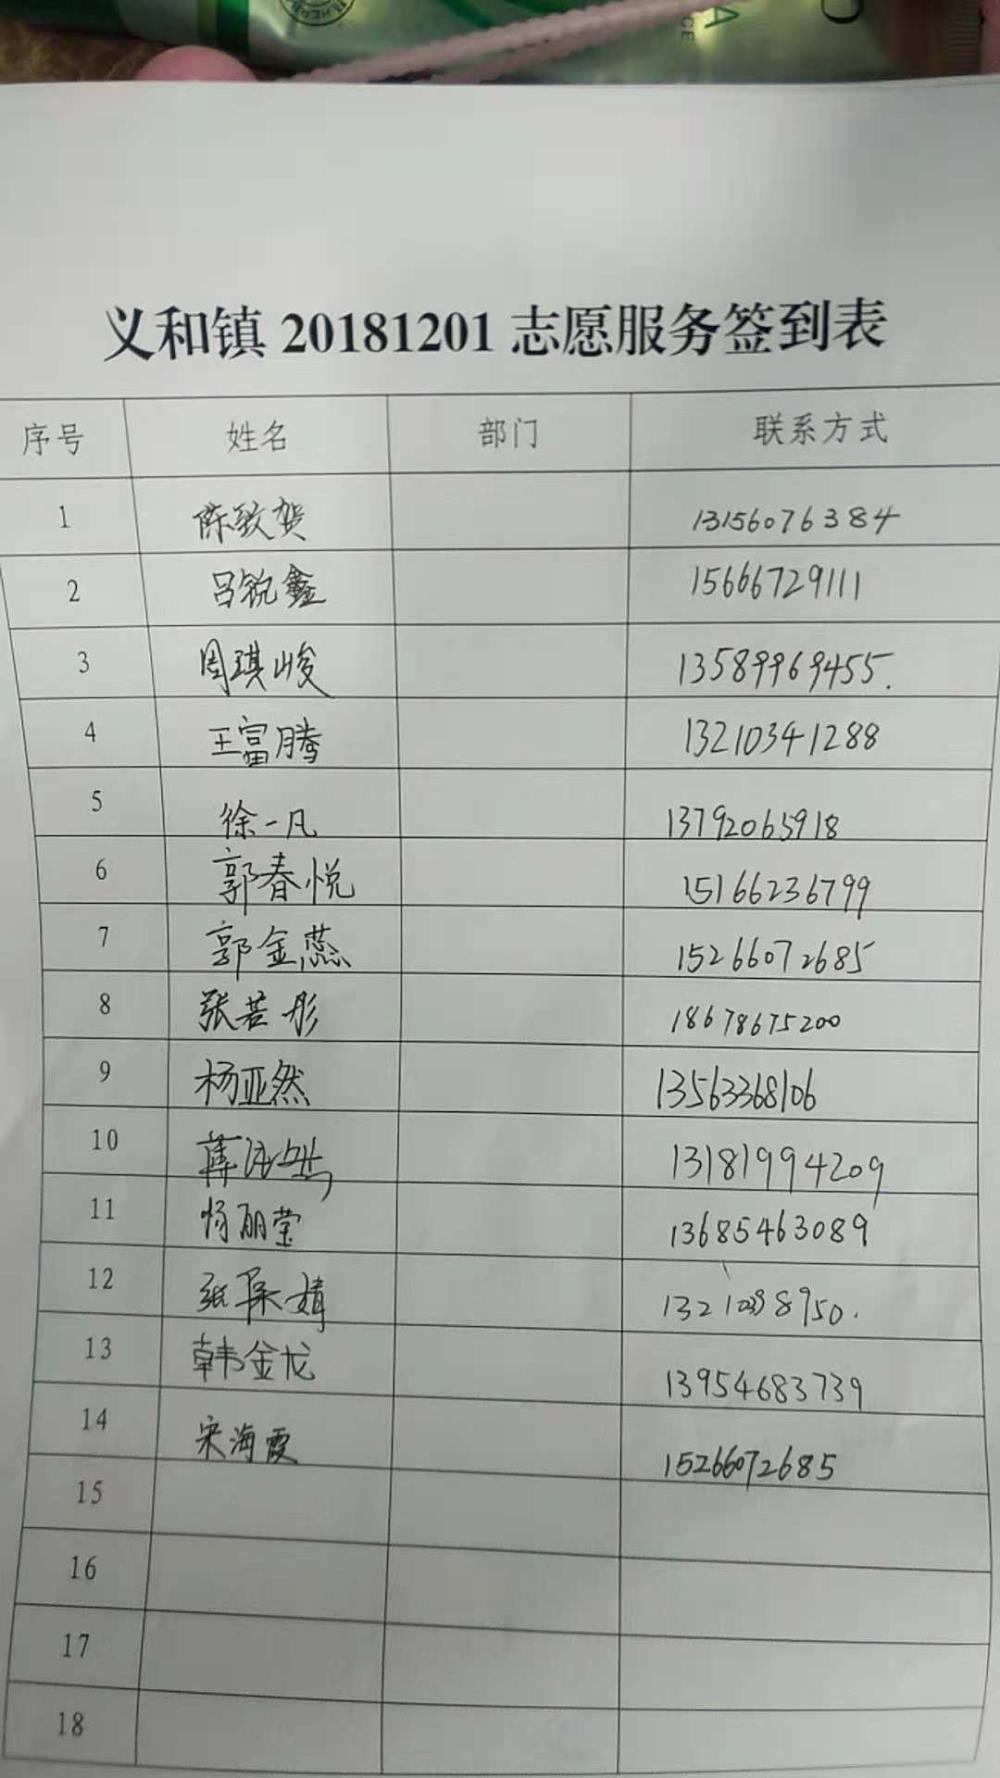 义和镇 20181201 志愿服务签到表
序号 姓名 部门 联系方式
1 陈致贺 13156076384
2 吕锐鑫 15666729111
3 周琪峻 13589969455.
4 王富腾 13210341288
5 徐一凡 13792065918
6 郭春悦 15166236799
7 郭金蕊 15266072685
8 张若彤 18678675200
9 杨亚然 13563368106
10 13181994209
11 杨丽莹 13685463089
12 张 婧
13 韩金龙 13954683739
14 宋海霞 15266072685
15
16
17
18